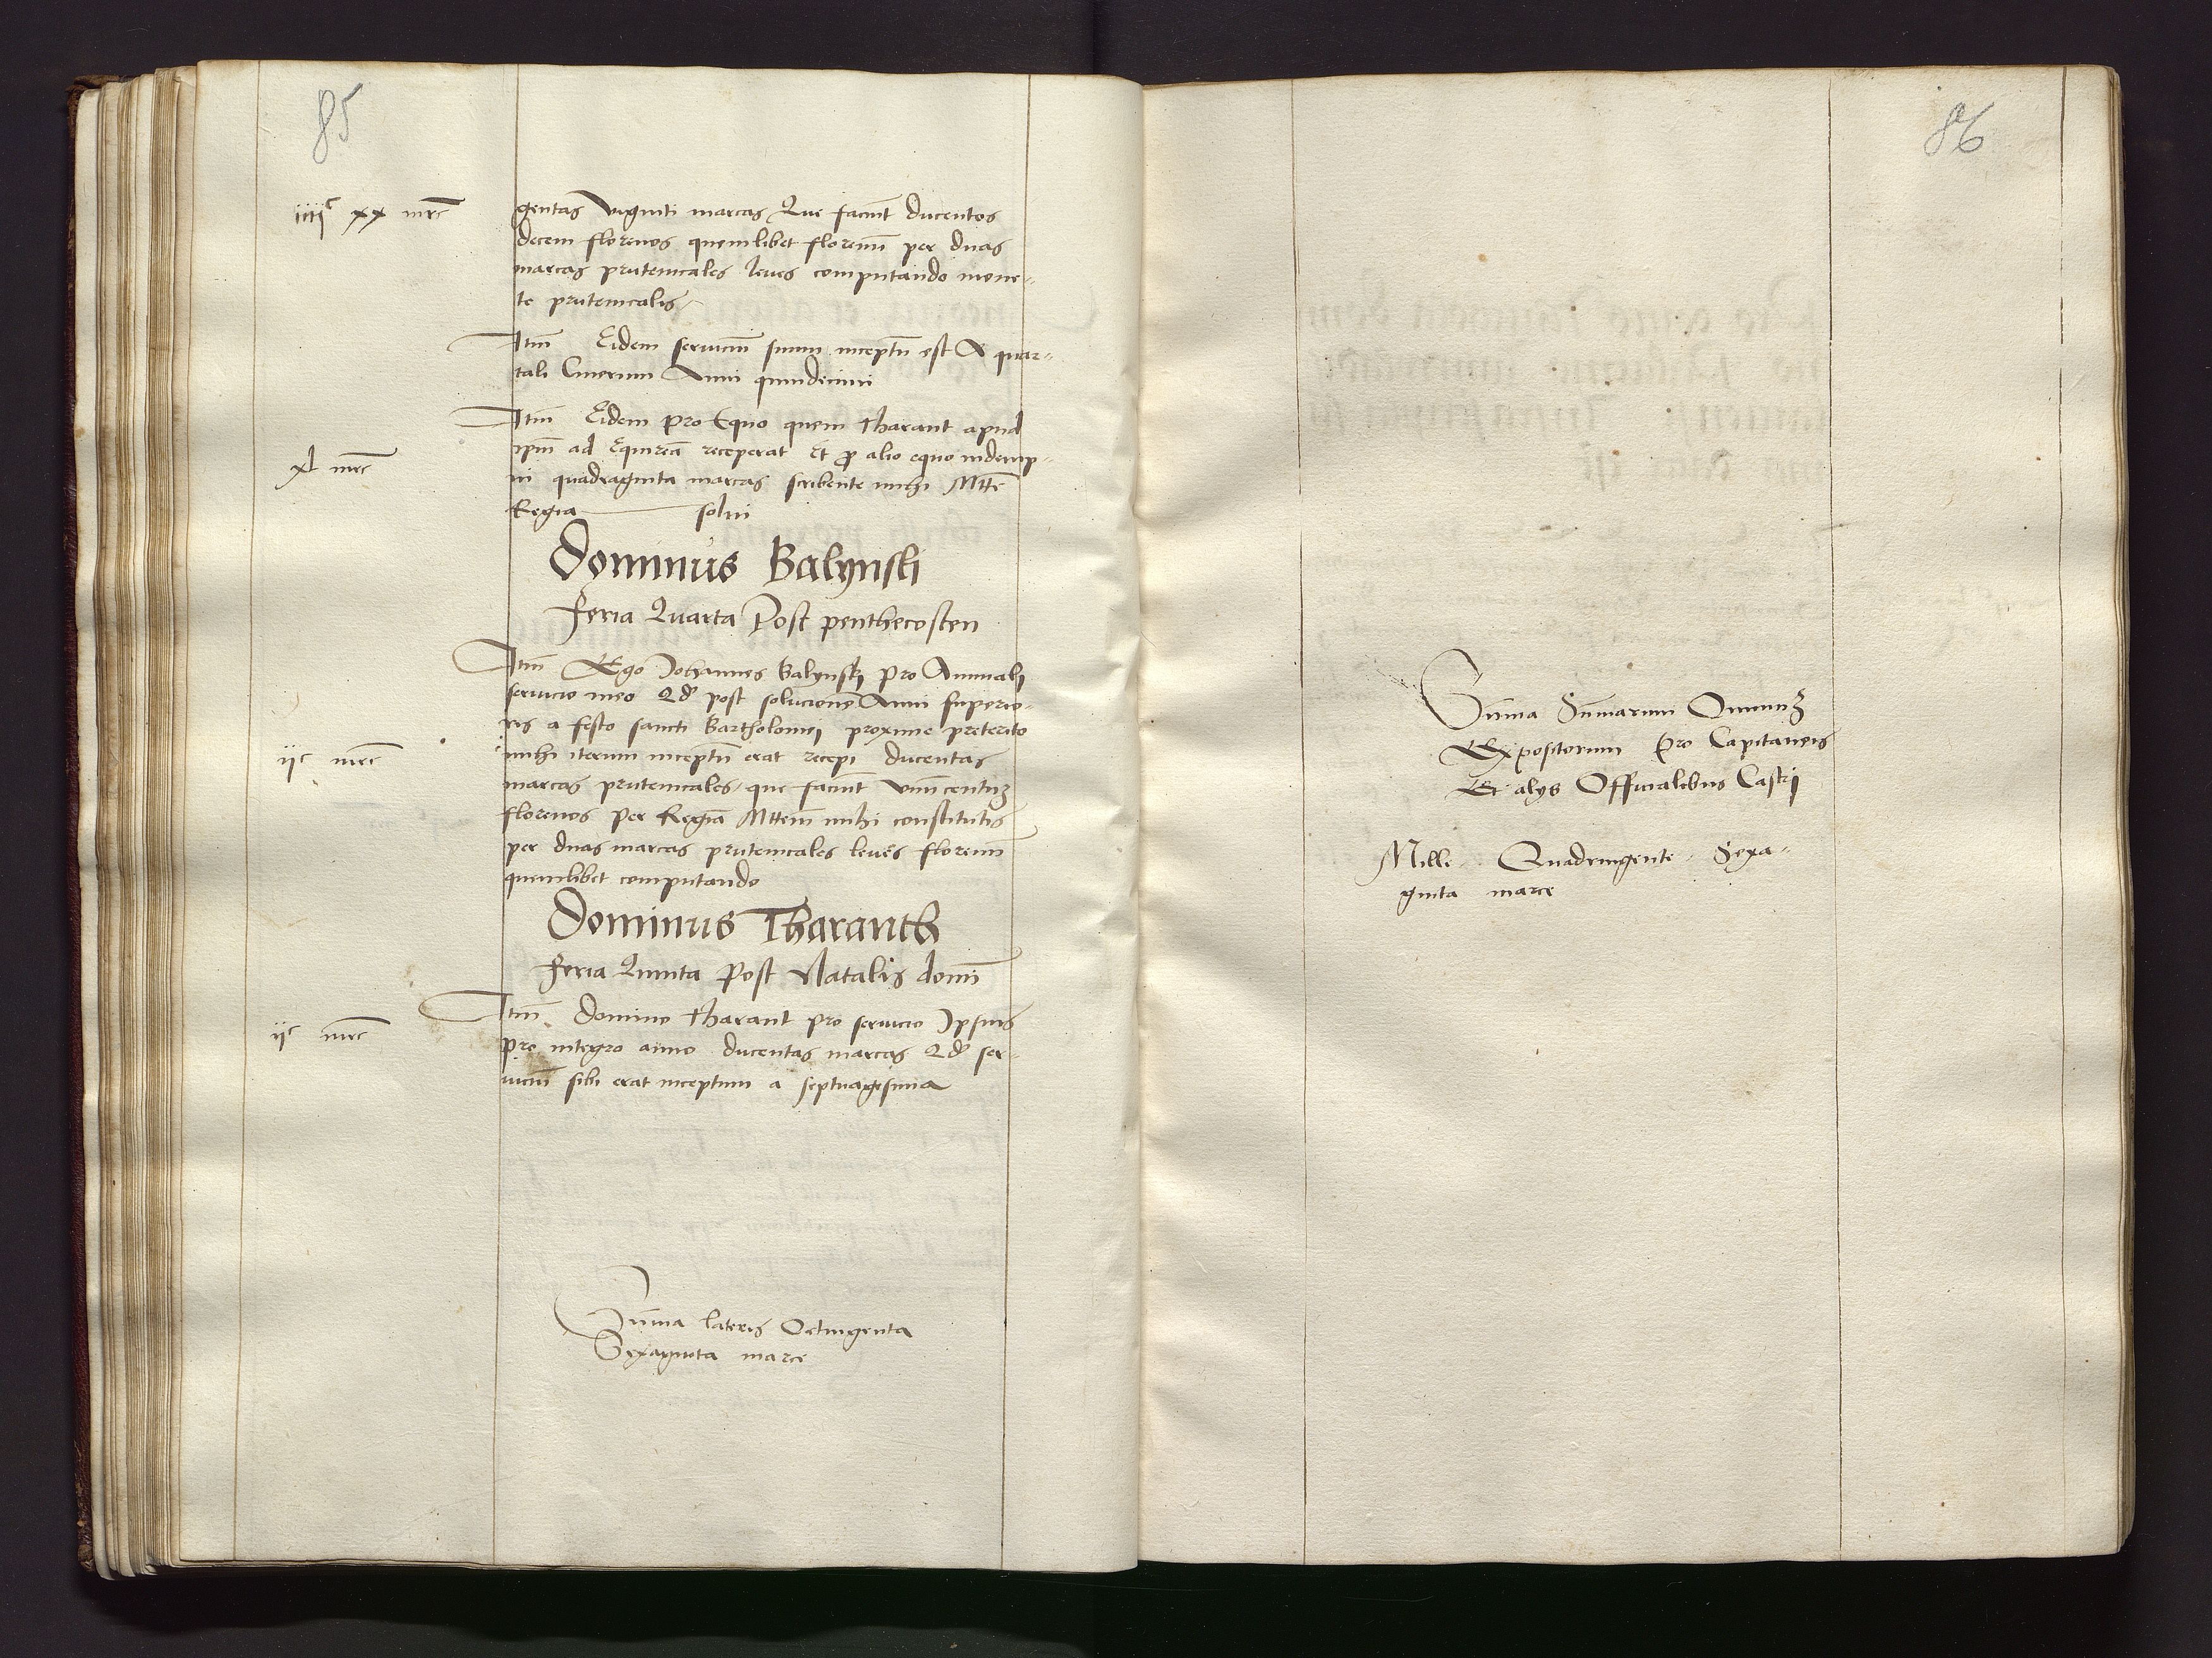 85
iiiiᶜ xx mrc̄
gentas viginti marcas Que faciūt ducentos
decem florenos quemlibet florenū per duas
marcas prutenicales leues computando mone-
te prutenicalis
Itm̄ Eidem seruiciū suum inceptū est A quar-
tali Cinerum Anni quindecimi
Itm̄ Eidem pro Equo quem tharant apud
xl mrc̄
ipm̄ ad receperat Et ꝓ alio equo indemp-
ni quadraginta marcas scribente michi Mtte
Regia solui
Dominus Balynski
feria Quarta Post penthecosten
Itm̄ Ego Johannes Balynskj pro Annualj
seruicio meo Qd̄ post solucionē Anni superio-
ris a festo sancti Bartholomej proxime preterito
iiᶜ mrc̄
michi iterum inceptū erat recepi ducentas
marcas prutenicales, que faciūt vnū centuʒ
florenos per Regiā Mttem michi constitutis
per duas marcas prutenicales leues florenū
quemlibet computando
Dominus Tharanth
feria Quinta Post Natalis domī
Itm̄ Domino tharant pro seruicio Ipsius
iiᶜ mrc̄
pro integro anno ducentas marcas Qd̄ ser-
uiciū sibi erat inceptum a septuagesima
Sūma lateris Octingenta
Sexaginta marce
86
Sūma Sūmarum Omniuʒ
Expositorum Pro Capitaneis
Et alys Officialibus Castrj
Mille Quadringente Sexa-
ginta marce